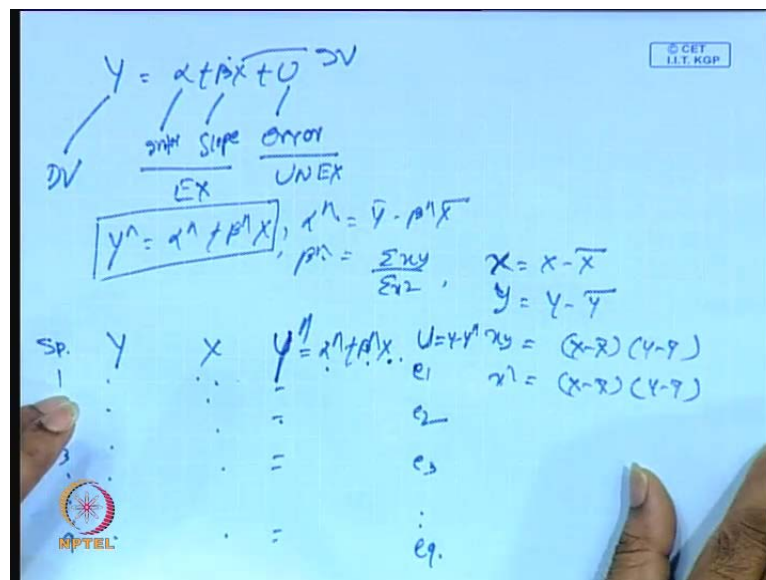 © CET
I.I.T. KGP
Y = α + βX + U DV
DV inter Slope error
EX UNEX
Y^ = α^ + β^X, α^ = Y̅ - β^X̅
β^ = Σxy / Σx2, x = X - X̅
y = Y - Y̅
Sp. Y X Y^ = α^ + β^X. U = Y-Y^ xy = (X-X̅)(Y-Y̅)
1 e1 x^ = (X-X̅)(Y-Y̅)
= e2
3 = e3
= e9.
NPTEL